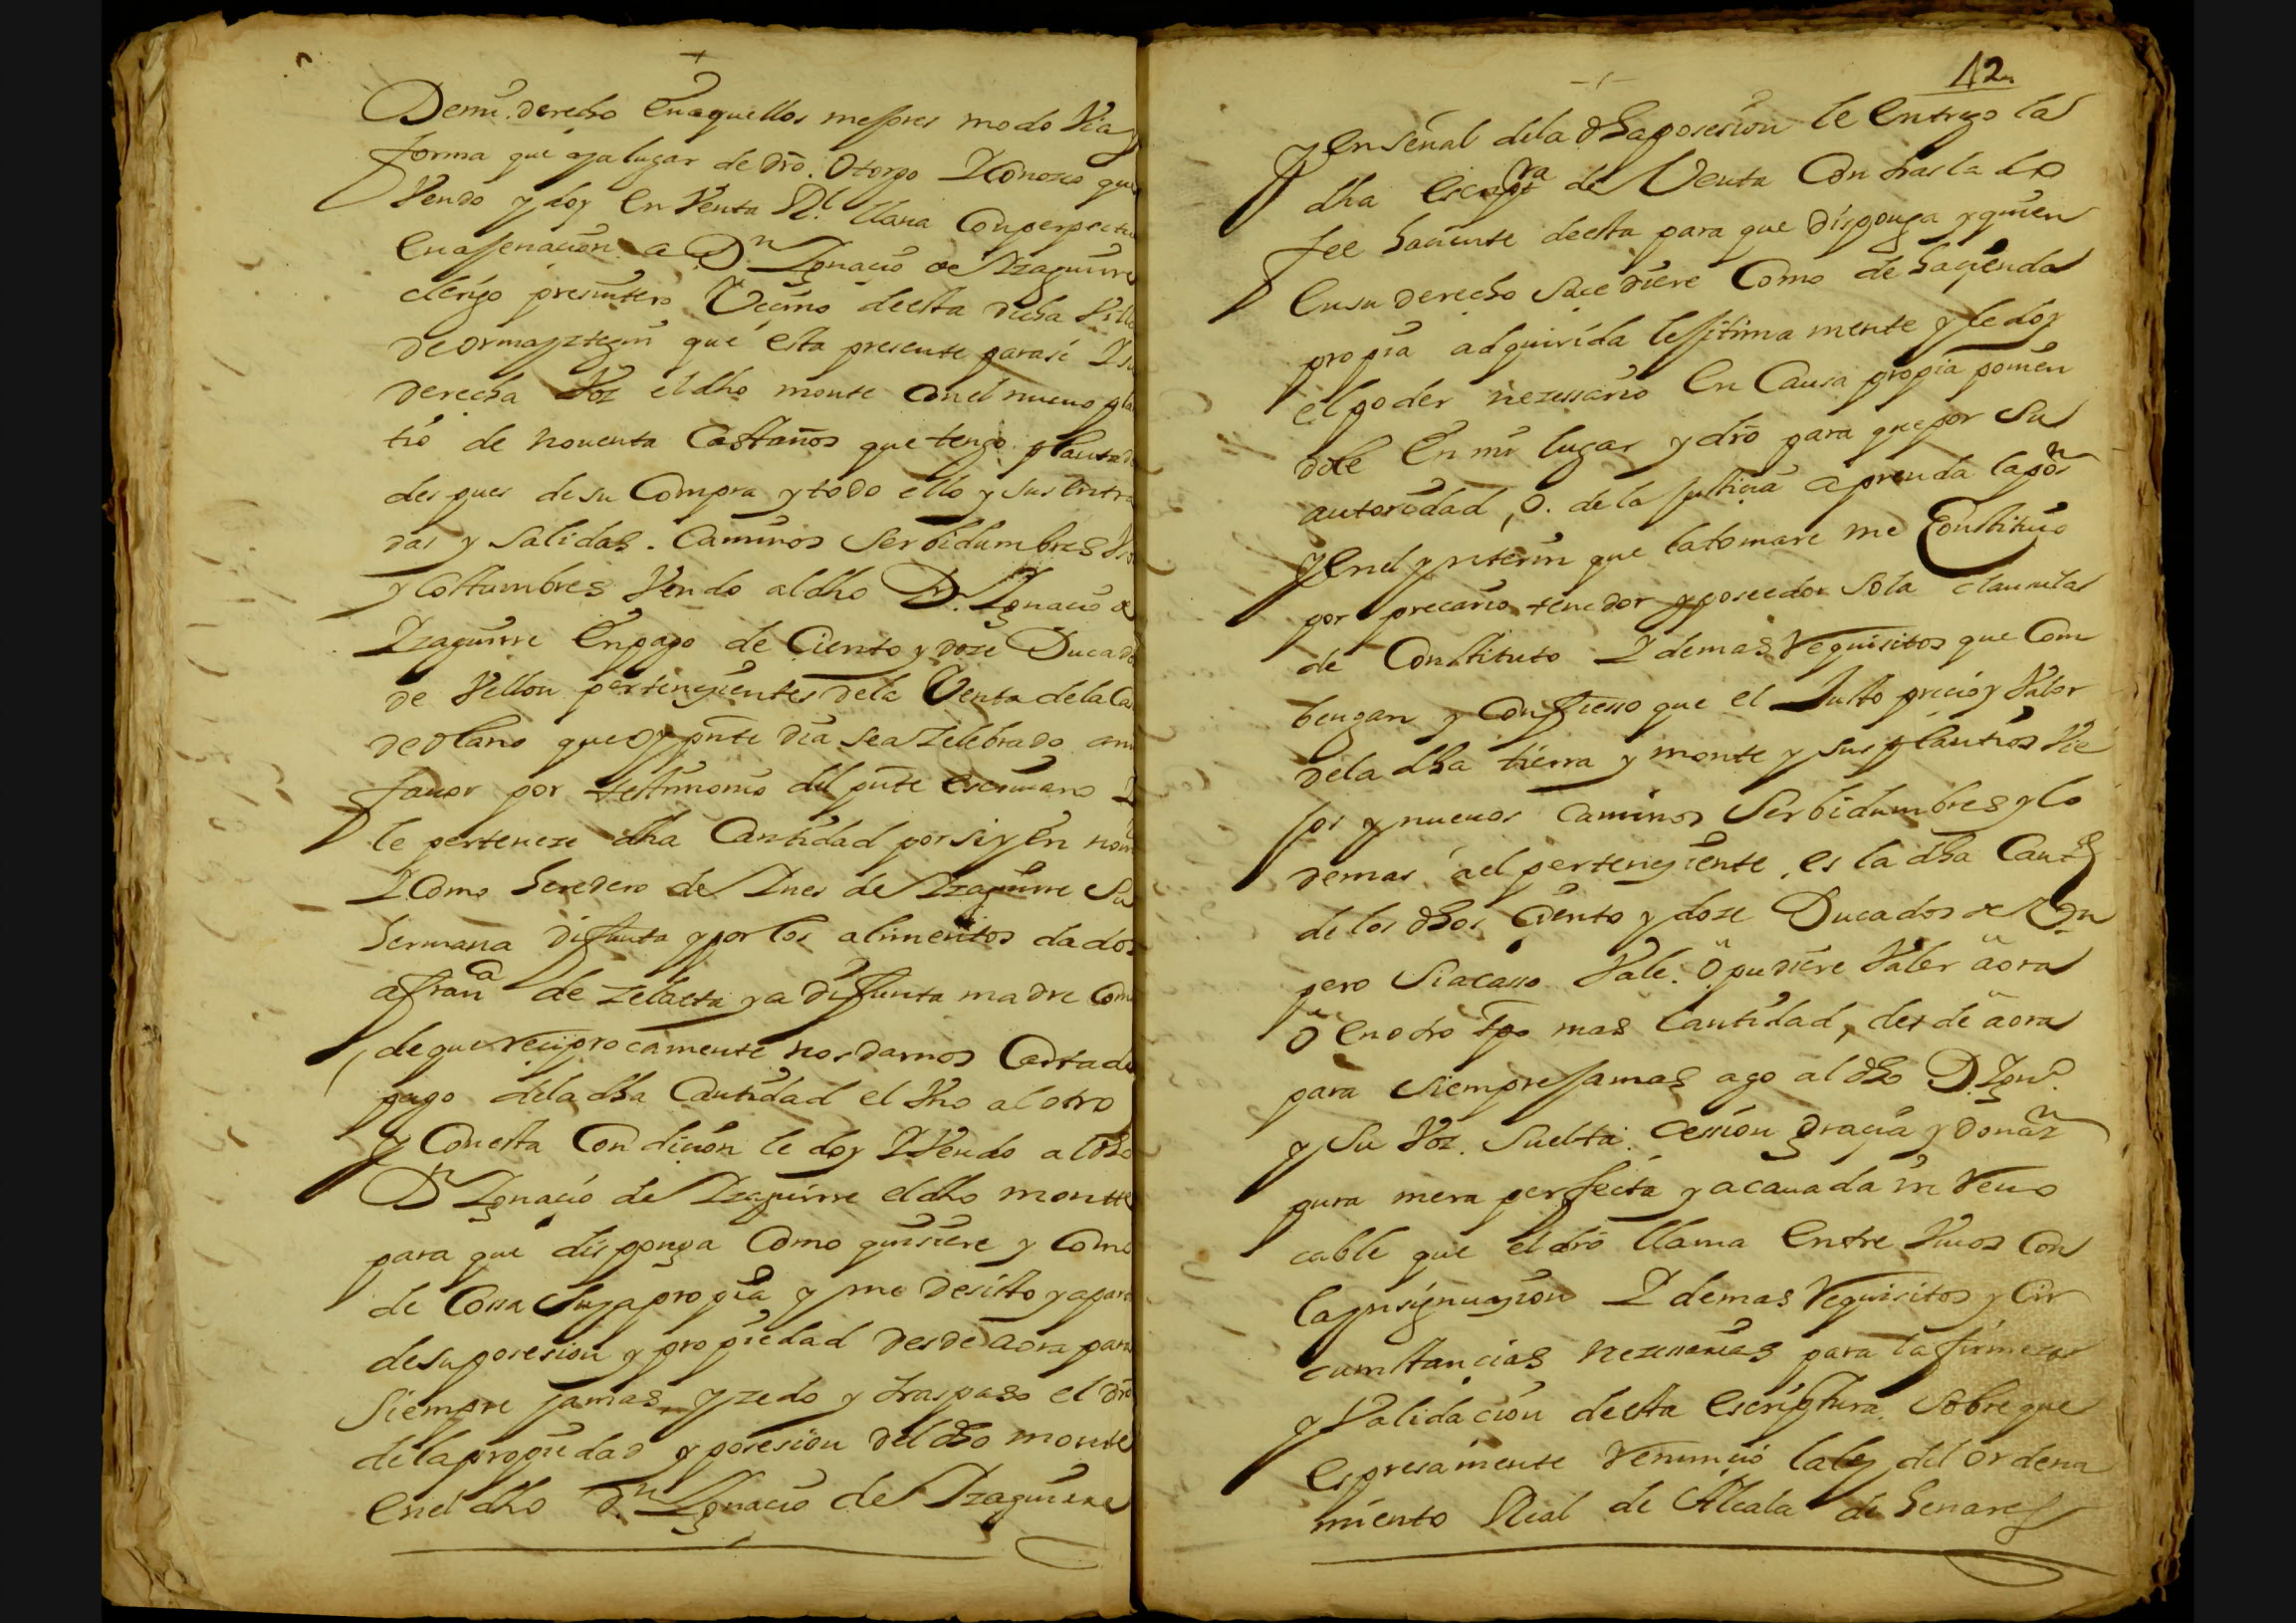 Demi derecho En aquellos mejores modo Via y
forma que aya lugar de dro. Otorgo I Conozco que
Vendo y doy En Venta Rl. llana Con perpectua
Enajenacion a Dn Ignacio de Izaguirre
clerigo presvitero Vecino de esta dicha Villa
de ormayztegui que esta presente para si I su
derecha Voz el dho monte con el nuevo plan
tio de noventa Castaños que tengo plantado
despues de su Compra y todo ello y sus Entra
das y Salidas. Caminos Serbidumbres Vsos
y Costumbres Vendo al dho Dn. Ignacio de
Izaguirre En pago de Ciento y doze Ducados
de Vellon pertenezientes de la Venta de la Cas
de olano que oy pnte dia sea zelebrado a mi
favor por testimonio del pnte escrivano I
le perteneze dha Cantidad por si y En nom
I Como heredero de Ines de Izaguirre Su
hermana difunta y por los alimentos dados
a franca de zelaeta ya difunta madre Com
de que reciprocamente nos damos Carta de
pago de la dha Cantidad el Vno al otro
y Con esta Condicion le doy I Vendo al dho
Dn Ignacio de Izaguirre el dho monte
para que disponga Como quisiere y Como
de Cosa Suya propia y me desisto y aparto
de su posesion y propiedad desde aora para
Siempre jamas, y zedo y traspaso el dro
de la propiedad y posesion del dho monte
en el dho Dn. Ignacio de Izaguirre
12
y En señal de la dha posesion le Entrego la
dha escriptra de Venta Con trasla do
fee haciente de esta para que disponga y quien
En su derecho Sucediere Como de hacienda
propia adquirida lejitima mente y le doy
el poder nezessario En Causa propia ponien
dole En mi lugar y dro para que por Su
autoridad, o. de la justicia aprenda la pon
y En el ynterin que la tomare me Constituio
por precario tenedor y poseedor So la clausula
de Constituto I demas Requisitos que Com
bengan y Confiesso que el Justo precio y Valor
de la dha tierra y monte y sus plantios Vie
jos y nuevos Caminos Serbidumbres y lo
demas a el perteneziente, es la dha Cantd
de los dhos Ciento y doze Ducados de Von
pero Si acasso Vale. O pudiere Valer aora
O en otro tpo mas Cantidad, desde aora
para Siempre jamas ago al dho D. Igno.
y Su Voz. Suelta. Cession Gracia y Donazn
pura mera perfecta y acavada irrevo
cable que el dro llama Entre Vivos Con
la ynsignuazion I demas Requisitos y Cir
cumstancias nezesarias para la firmeza
y Validacion de esta escriptura Sobre que
Espresamente Renuncio la ley del ordena
miento Real de Alcala de henares